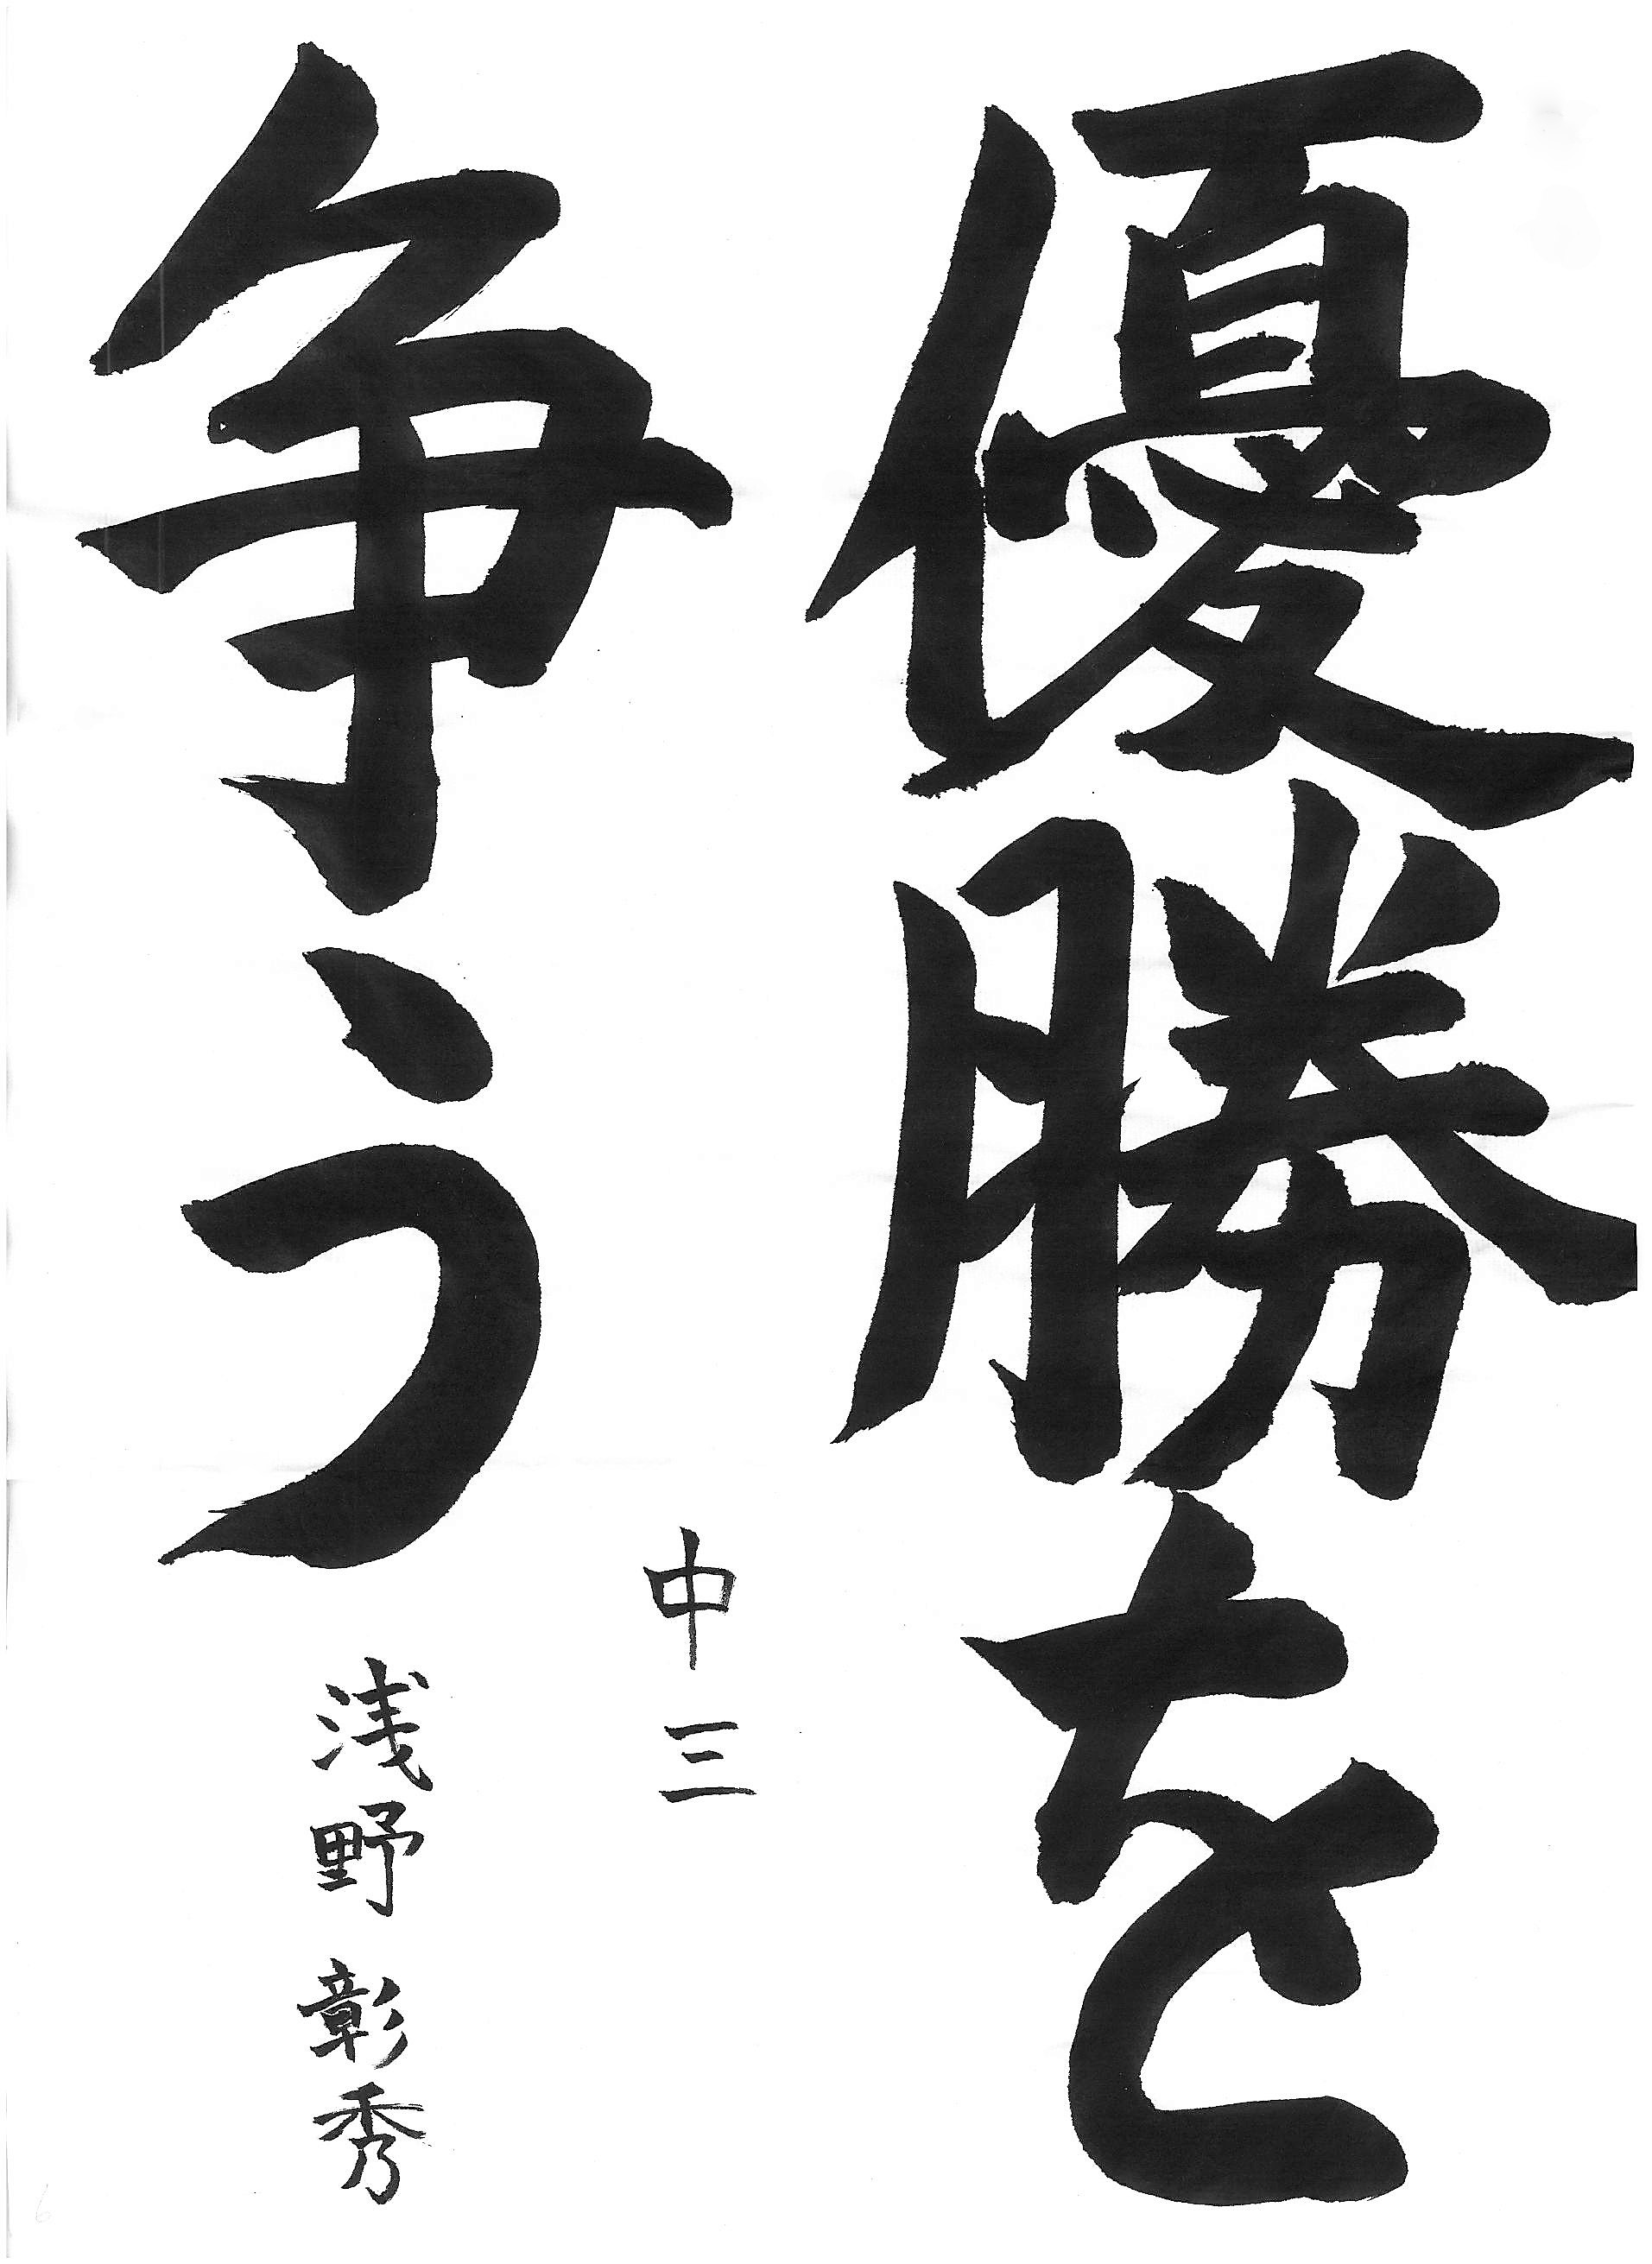 優勝を
争う
中三
浅野彰秀